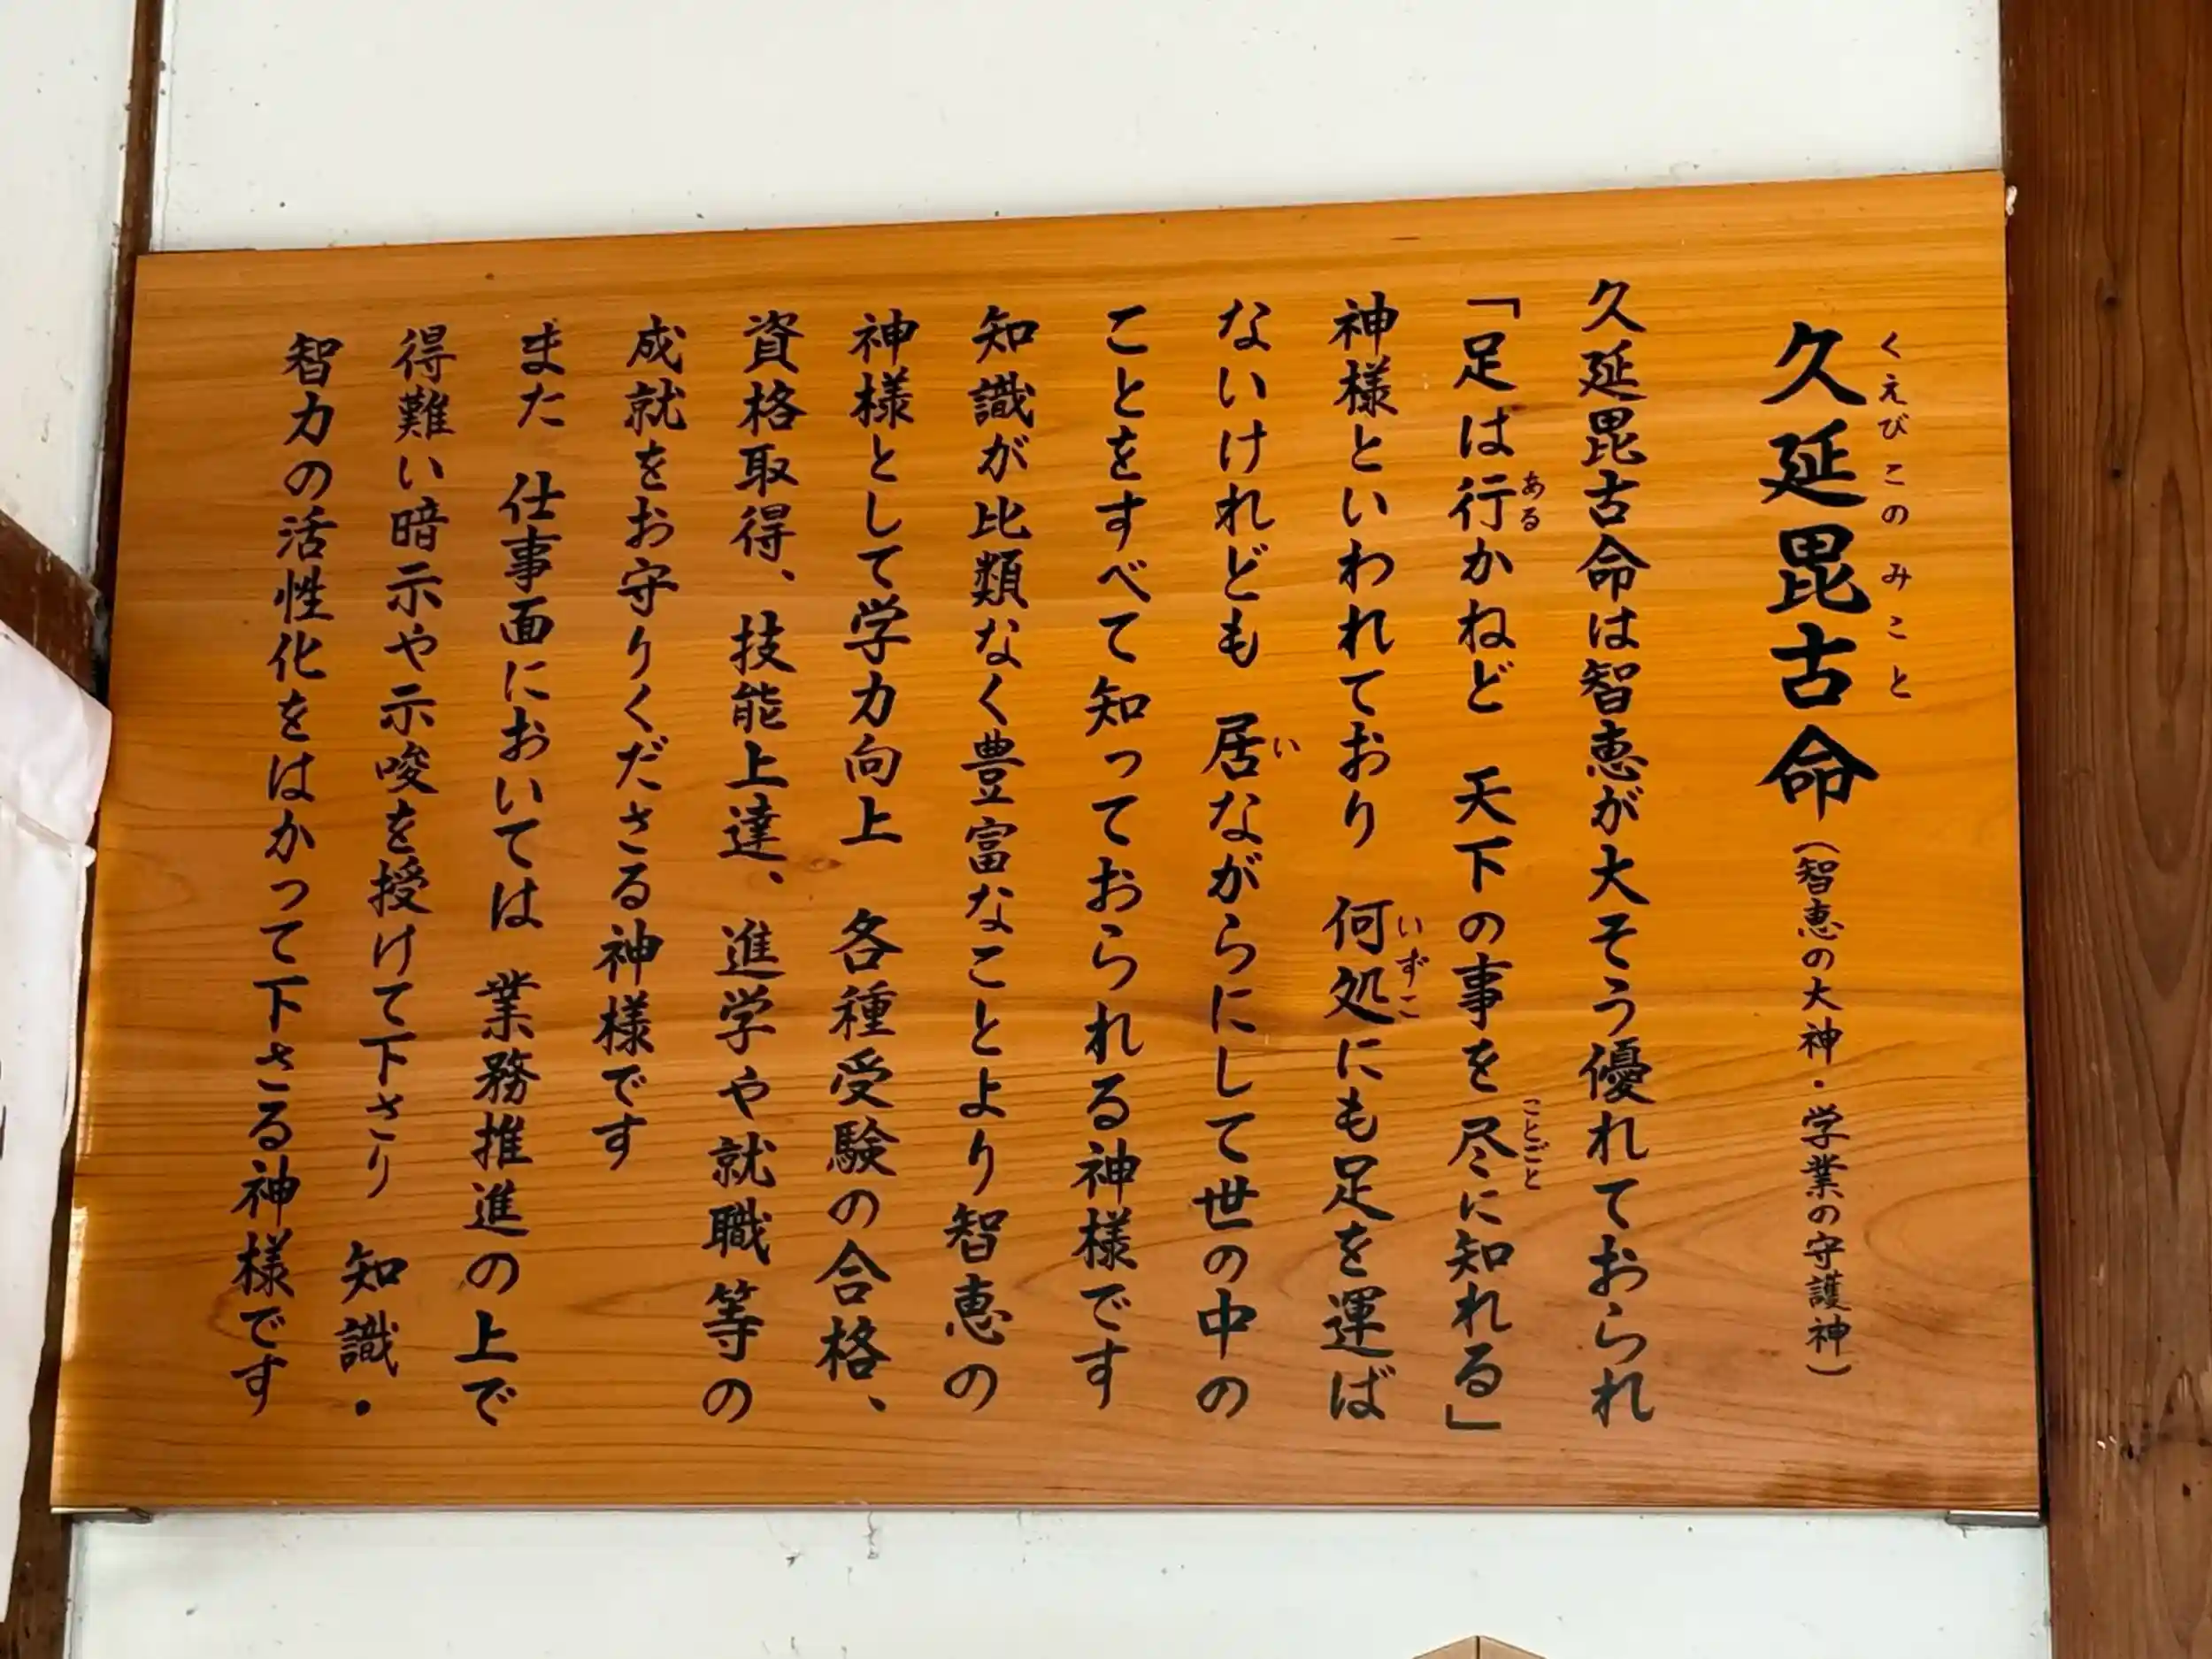 久延毘古命（智恵の大神・学業の守護神）
くえびこのみこと
久延毘古命は智恵が大そう優れておられ
「足は行かねど　天下の事を尽に知れる」
ある
ことごと
神様といわれており　何処にも足を運ば
いずこ
ないけれども　居ながらにして世の中の
い
ことをすべて知っておられる神様です
知識が比類なく豊富なことより智恵の
神様として学力向上　各種受験の合格、
資格取得、技能上達、進学や就職等の
成就をお守りくださる神様です
また　仕事面においては　業務推進の上で
得難い暗示や示唆を授けて下さり　知識・
智力の活性化をはかって下さる神様です